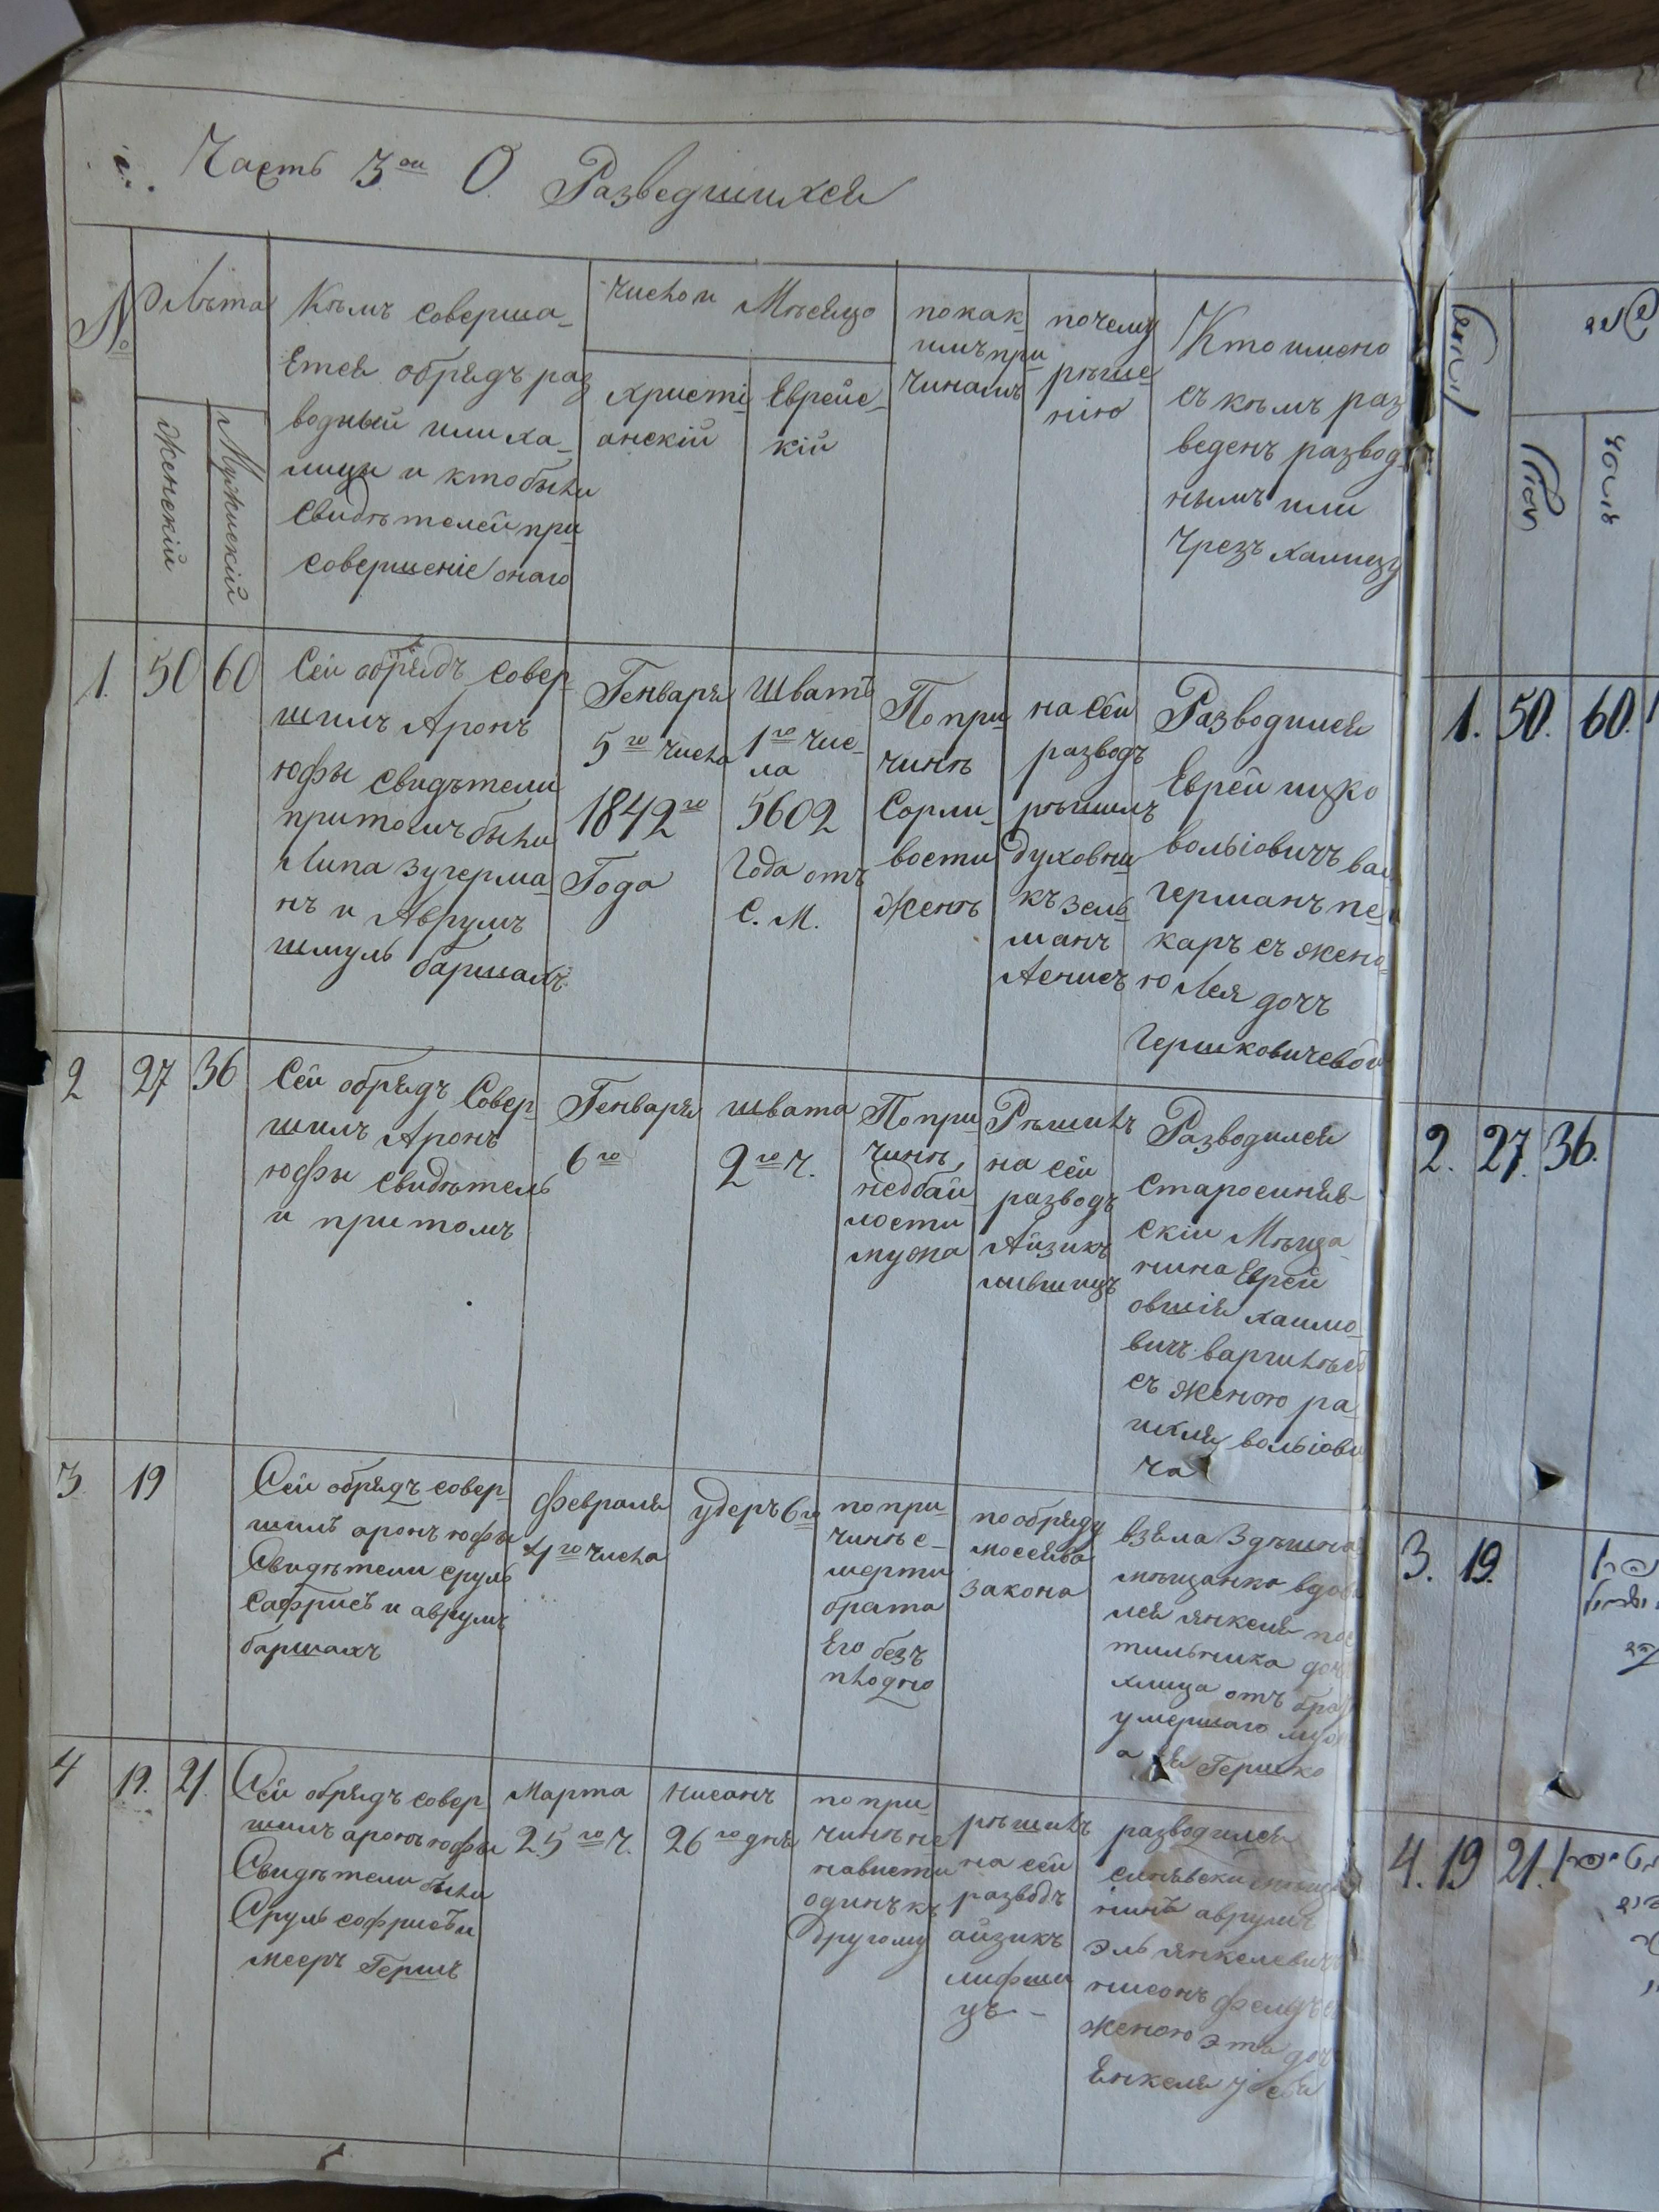 Часть 3ои О Разведшихся
№
Лѣта
Женскій
Мужискій
Кѣмъ соверша-
ется обрядъ раз
водный или ха-
лицы и кто были
свидѣтелей при
совершеніе онаго
Число и Мѣсяцо
Христі
анскій
Еврейс-
кій
по как-
имъ при
чинамъ
почему
рѣше
нію
Кто имено
съ кѣмъ раз
веденъ развод-
нымъ или
чрезъ халицу
1. 50 60
Сей обрядъ совер-
шилъ Аронъ
юфы свидѣтели
притомъ были
Липа зугерма-
нъ и Аврумъ
шмуль баршакъ
Генваря
5го числа
1842го
Года
Шватъ
1го чис-
ла
5602
Года отъ
С. М.
По при
чинѣ
Сорли-
вости
женѣ
на сей
разводъ
рѣшилъ
духовни
къ зель
манъ
Разводился
Еврей ицко
вольіовичъ ва
германъ пе
каръ съ жено-
ю Лея дочъ
Гершковичевой
2 27 36
Сей обрядъ Совер-
шилъ Аронъ
юфы свидѣтель
и притомъ
Генваря
6го
швата
2го ч.
По при
чинѣ,
мужа
Рѣшилъ
на сей
разводъ
Айзикъ
лившицъ
Разводился
Старосиняв-
скій Мѣща
нина Еврей
овшія хаимо-
вичъ
съ женою ра
хля вольіови
ча
3 19
Сей обрядъ совер-
шилъ аронъ юфы
Свидѣтели сруль
Сафрисъ и аврумъ
баршакъ
февраля
4го числа
удеръ 6го
по при-
чинѣ с-
мерти
брата
Его безъ
плодно
по обряду
мосейва
закона
взяла здѣшна
мѣщанка вдов
лея янкеля пос
тильника доч
хлица отъ бра
умершаго муж
а ея Гершко
4 19. 21.
Сей обрядъ совер-
шилъ аронъ юфы
Свидѣтели были
Сруль софрисъ и
мееръ Гершъ
Марта
25го ч.
нисанъ
26го днѣ
по при-
чинѣ не
нависти
одинъ къ
другому
рѣшилъ
на сей
разводъ
айзикъ
лифши
цъ -
разводился
синявски мѣща
нинъ аврумъ
эль янкелевичъ
нисонъ фельдъ с
женою эта доч
Енкеля
1. 50. 60.
2. 27. 36.
3. 19.
4. 19 21.